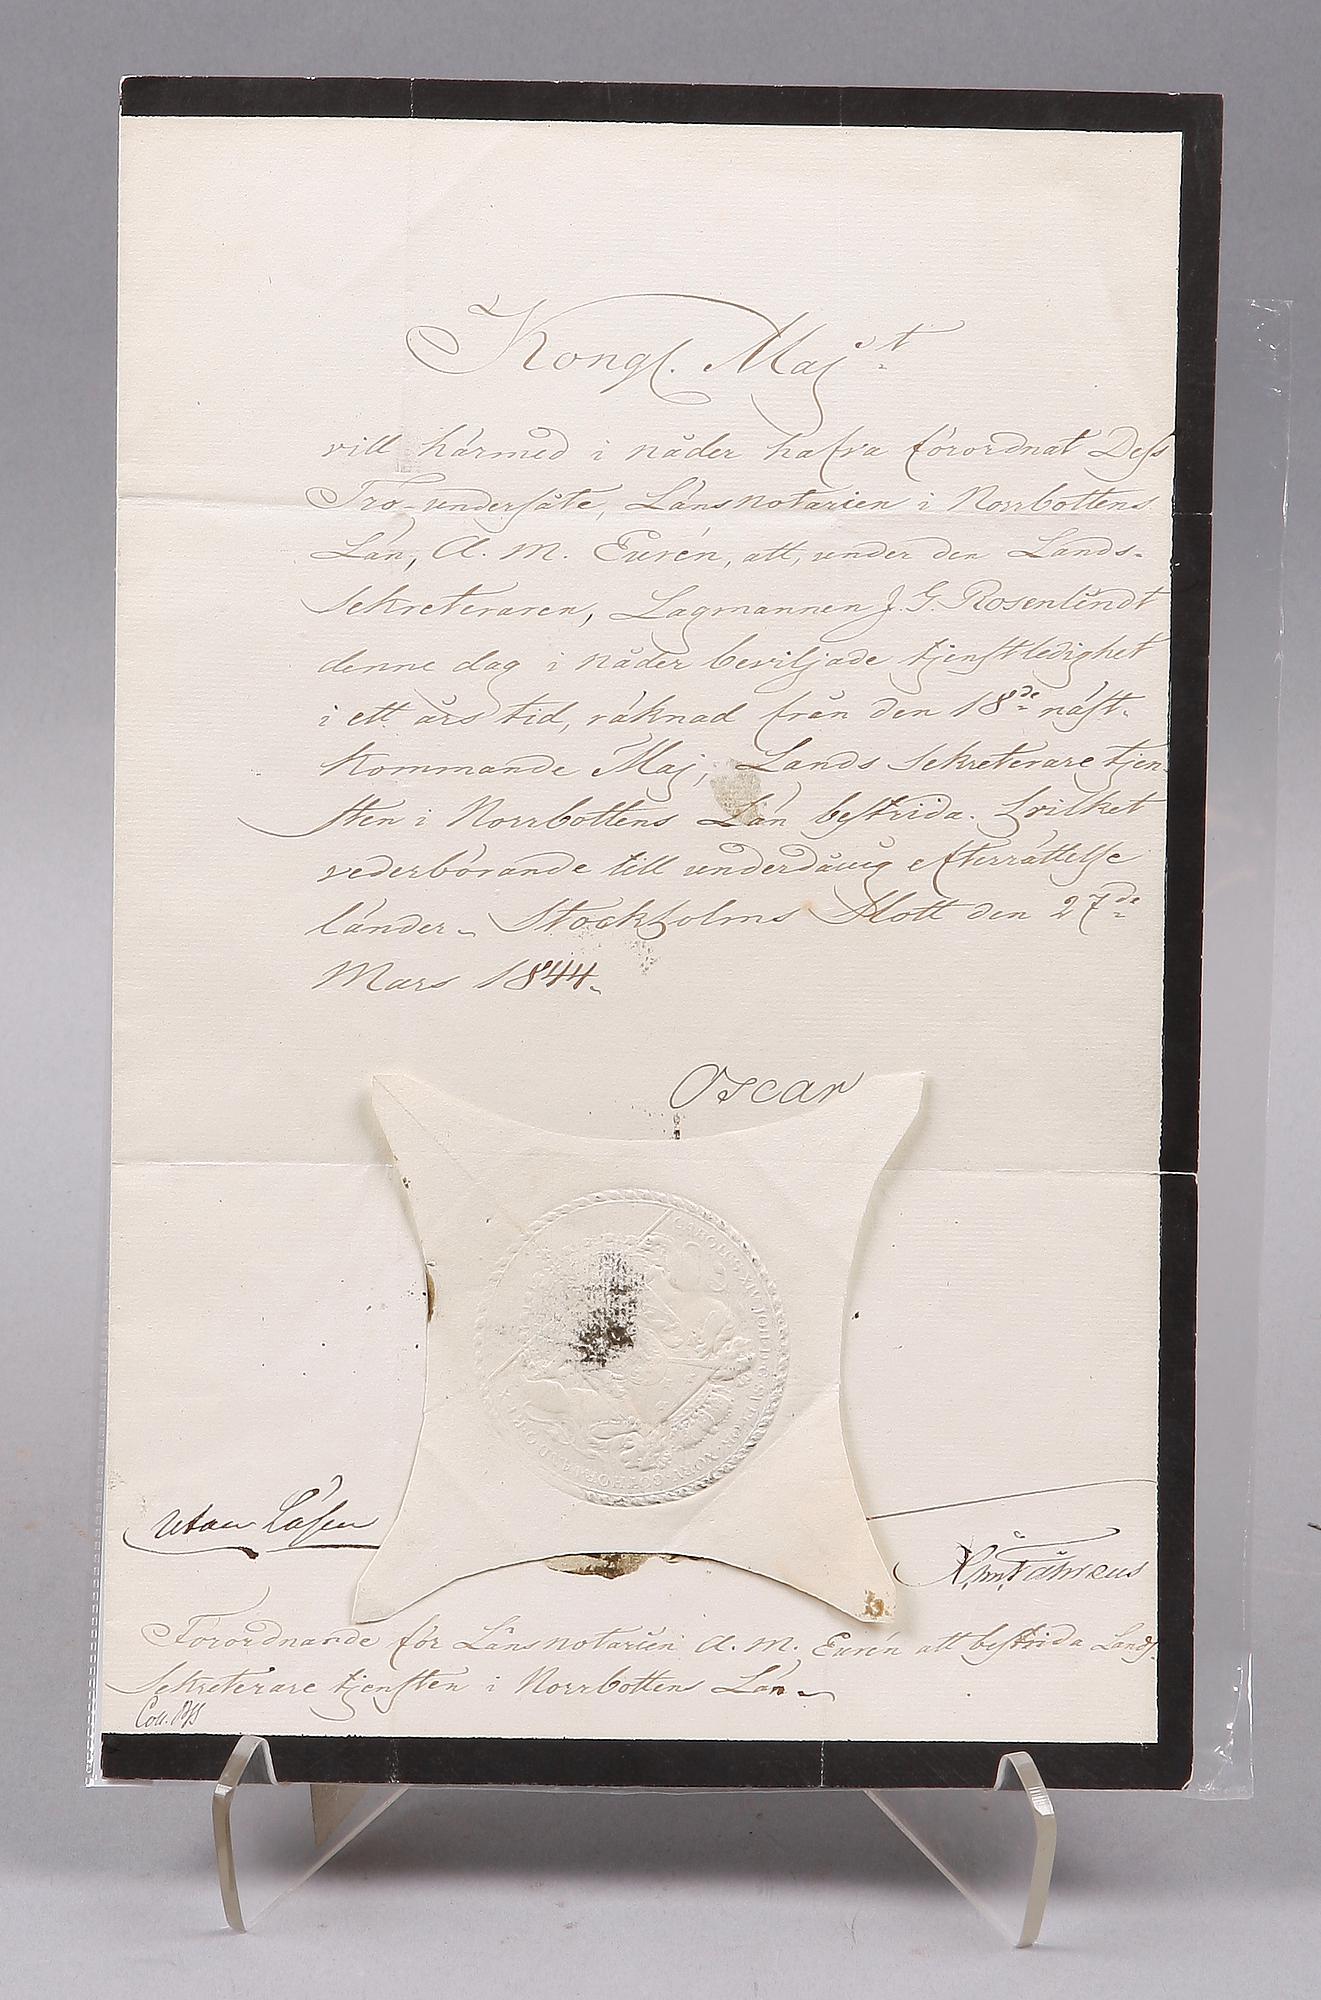 Kongl. Maj:t
vill härmed i nåder hafva förordnat Dess
Tro-undersåte, Länsnotarien i Norrbottens
Län, A. M. Eurén, att, under den Lands-
sekreteraren, Lagmannen J. G. Rosenlindt
denne dag i nåder beviljade tjenstledighet
i ett års tid, räknad från den 18de näst-
kommande Maj, Lands Sekreterare tjen-
sten i Norrbottens Län bestrida. Hvilket
vederbörande till underdånig efterrättelse
länder. Stockholms Slott den 27de
Mars 1844.
Oscar
CAROLUS XIV JOH. D. G. SUECOR. NORV. GOTHOR.
utan Lösen
Fåhræus
Förordnande för Länsnotarien A. M. Eurén att bestrida Lands-
Sekreterare tjensten i Norrbottens Län.